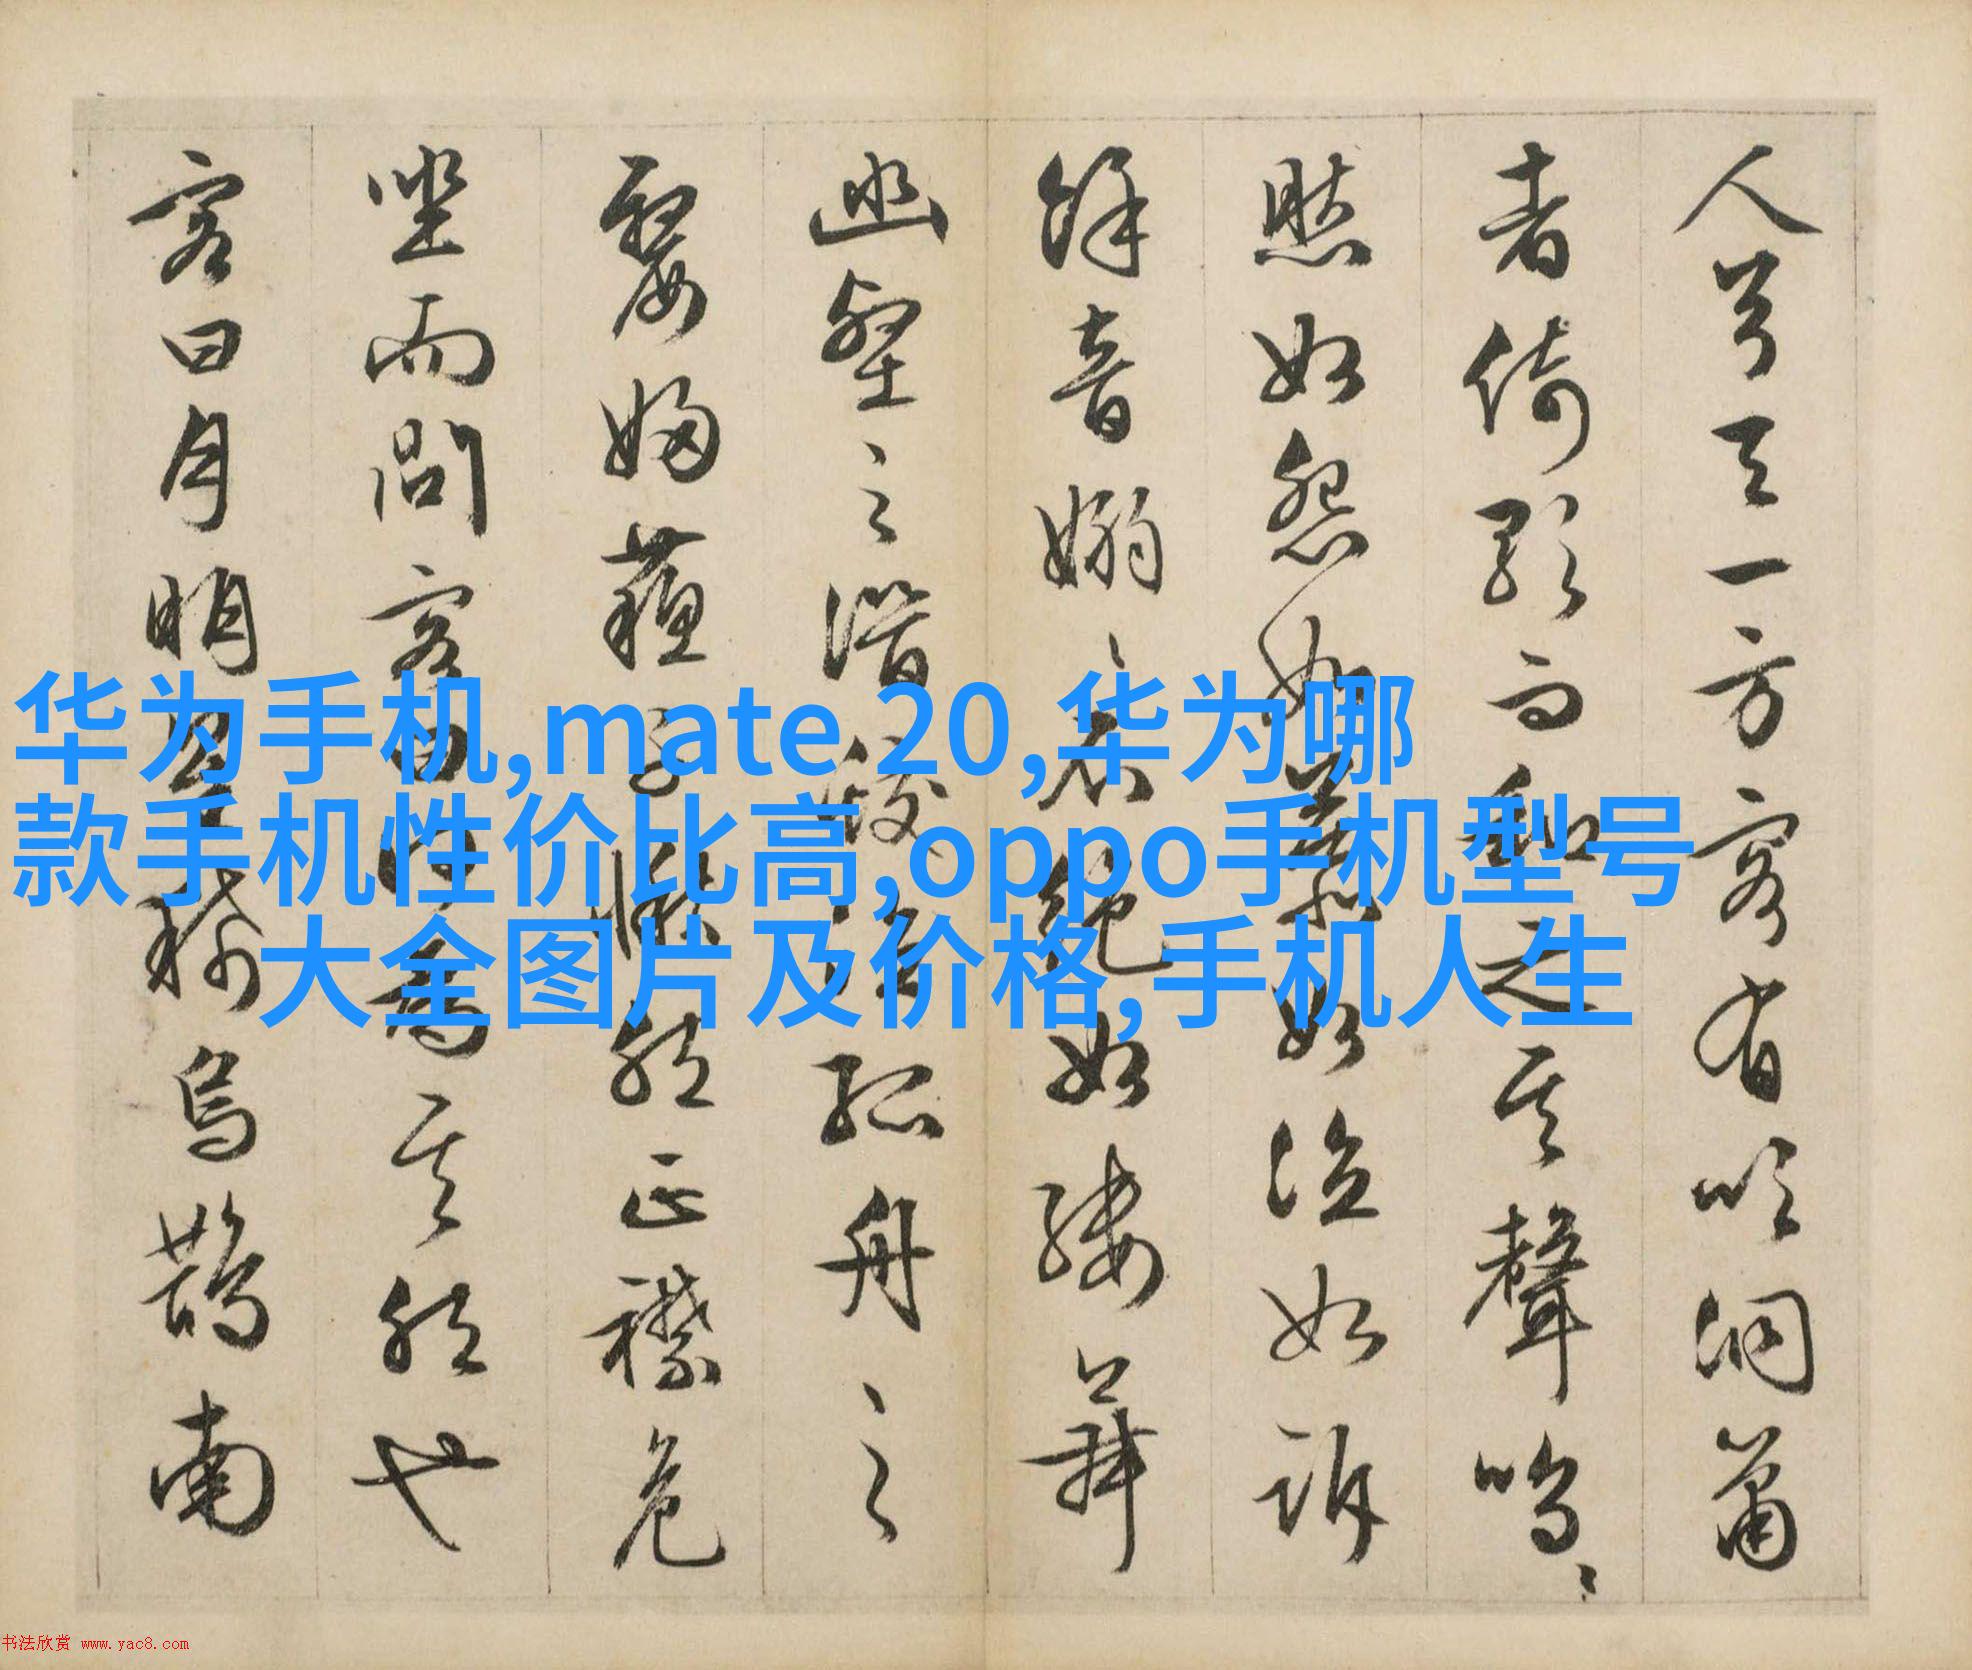 人兮天一方客有吹洞簫
者倚歌而和之其聲嗚〻
然如怨如慕如泣如訴
餘音嫋〻不絕如縷舞
幽壑之潛蛟泣孤舟之
嫠婦蘇子愀然正襟危
坐而問客曰何為其然也
客曰月明星稀烏鵲南
华为手机,mate 20,华为哪
款手机性价比高,oppo手机型号
大全图片及价格,手机人生
书法欣赏 www.yac8.com